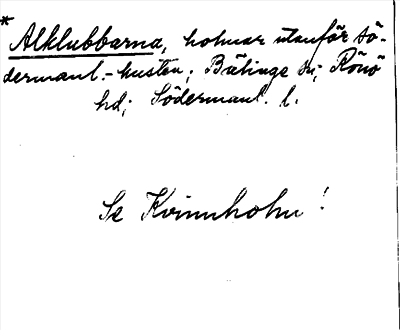 * Alklubbarna, holmar utanför sö-
dermanl.-kusten; Bälinge sn; Rönö
hd; Södermanl. l.
Se Kvinnholm!